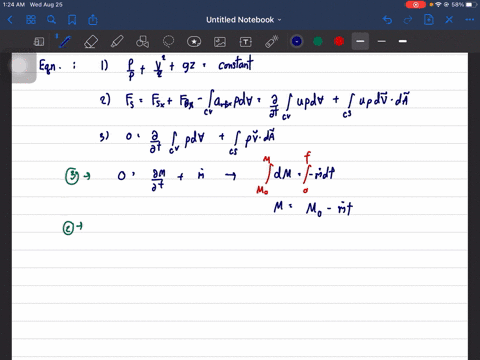 1:24 AM Wed Aug 25
58%
Untitled Notebook
Eqn : 1) P/ρ + V²/2 + gz = constant
2) Fs = Fsx + FBx - ∫cv arfx ρd∀ = ∂/∂t ∫cv uρd∀ + ∫cs uρdV⃗·dA⃗
3) 0 = ∂/∂t ∫cv ρd∀ + ∫cs ρV⃗·dA⃗
③ → 0 = ∂M/∂t + ṁ → ∫M₀^M dM = ∫₀^t -ṁdt
M = M₀ - ṁt
② →